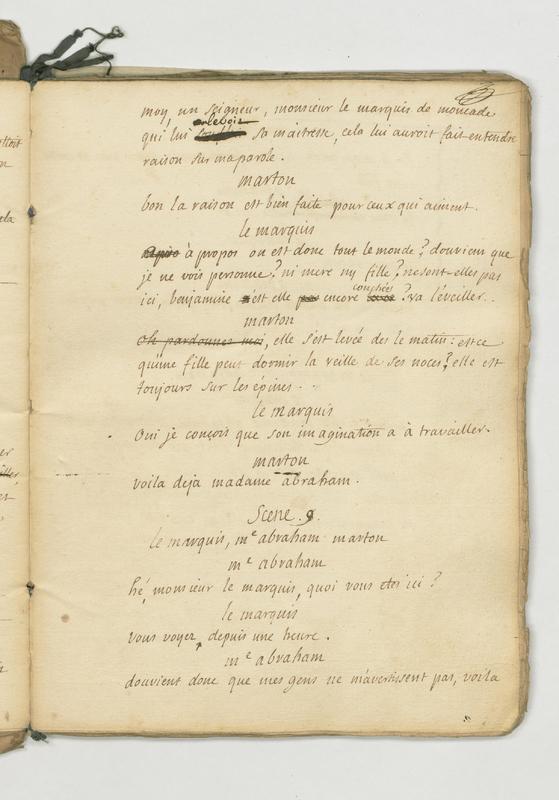 moy, un seigneur, monsieur le marquis de moncade
enlever
qui lui sa maitresse, cela lui auroit fait entendre
raison sur ma parole.
marton
bon la raison est bien faite pour ceux qui aiment.
le marquis
à propos ou est donc tout le monde? douvient que
je ne vois personne? ni mere ny fille? ne sont-elles pas
couchées
ici, benjamine n'est elle pas encore levée? va l'éveiller.
marton
oh pardonnez moi, elle s'est levée des le matin: est ce
qu'une fille peut dormir la veille de ses noces? elle est
toujours sur les épines.
le marquis
Oui je conçois que son imagination a à travailler.
marton
voila deja madame abraham.
Scene. 9.
le marquis, me abraham marton
me abraham
hé, monsieur le marquis, quoi vous ici?
le marquis
vous voyez, depuis une heure.
me abraham
douvient donc que mes gens ne m'avertissent pas, voila